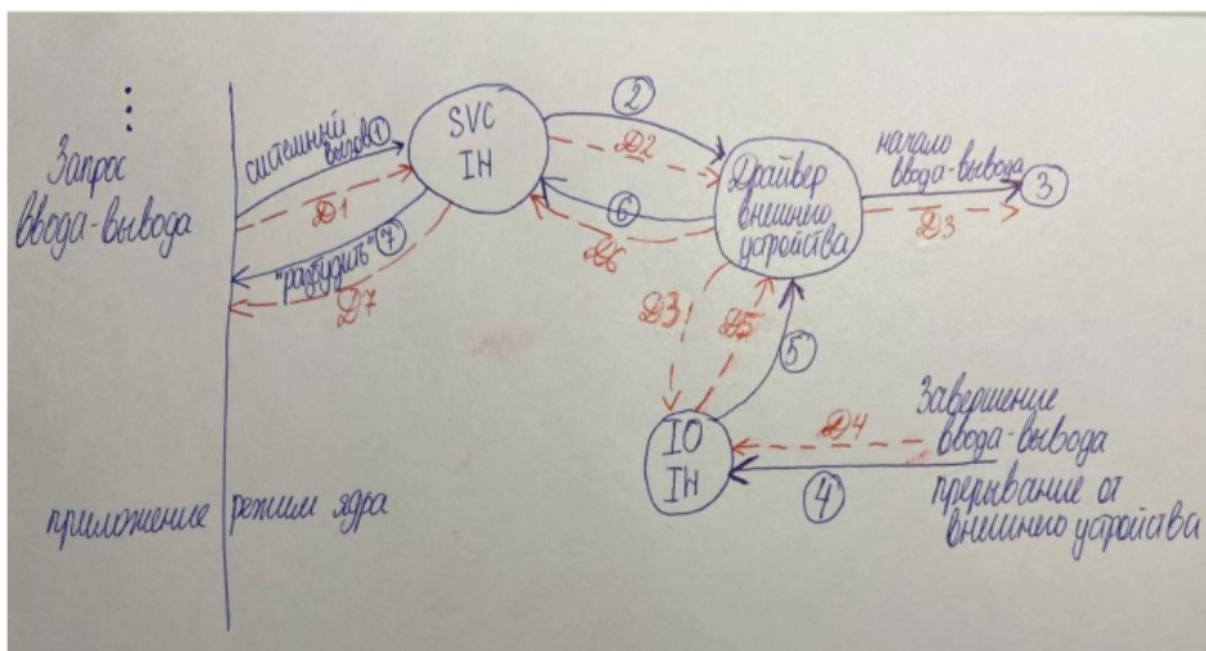 Запрос
ввода-вывода
системный
вызов ①
Д1
"разбудить" ⑦
Д7
SVC
IH
②
Д2
⑥
Д6
Драйвер
внешнего
устройства
начало
ввода-вывода
③
Д3
Д3
Д5
⑤
IO
IH
Д4
④
Завершение
ввода-вывода
прерывание от
внешнего устройства
приложение
режим ядра